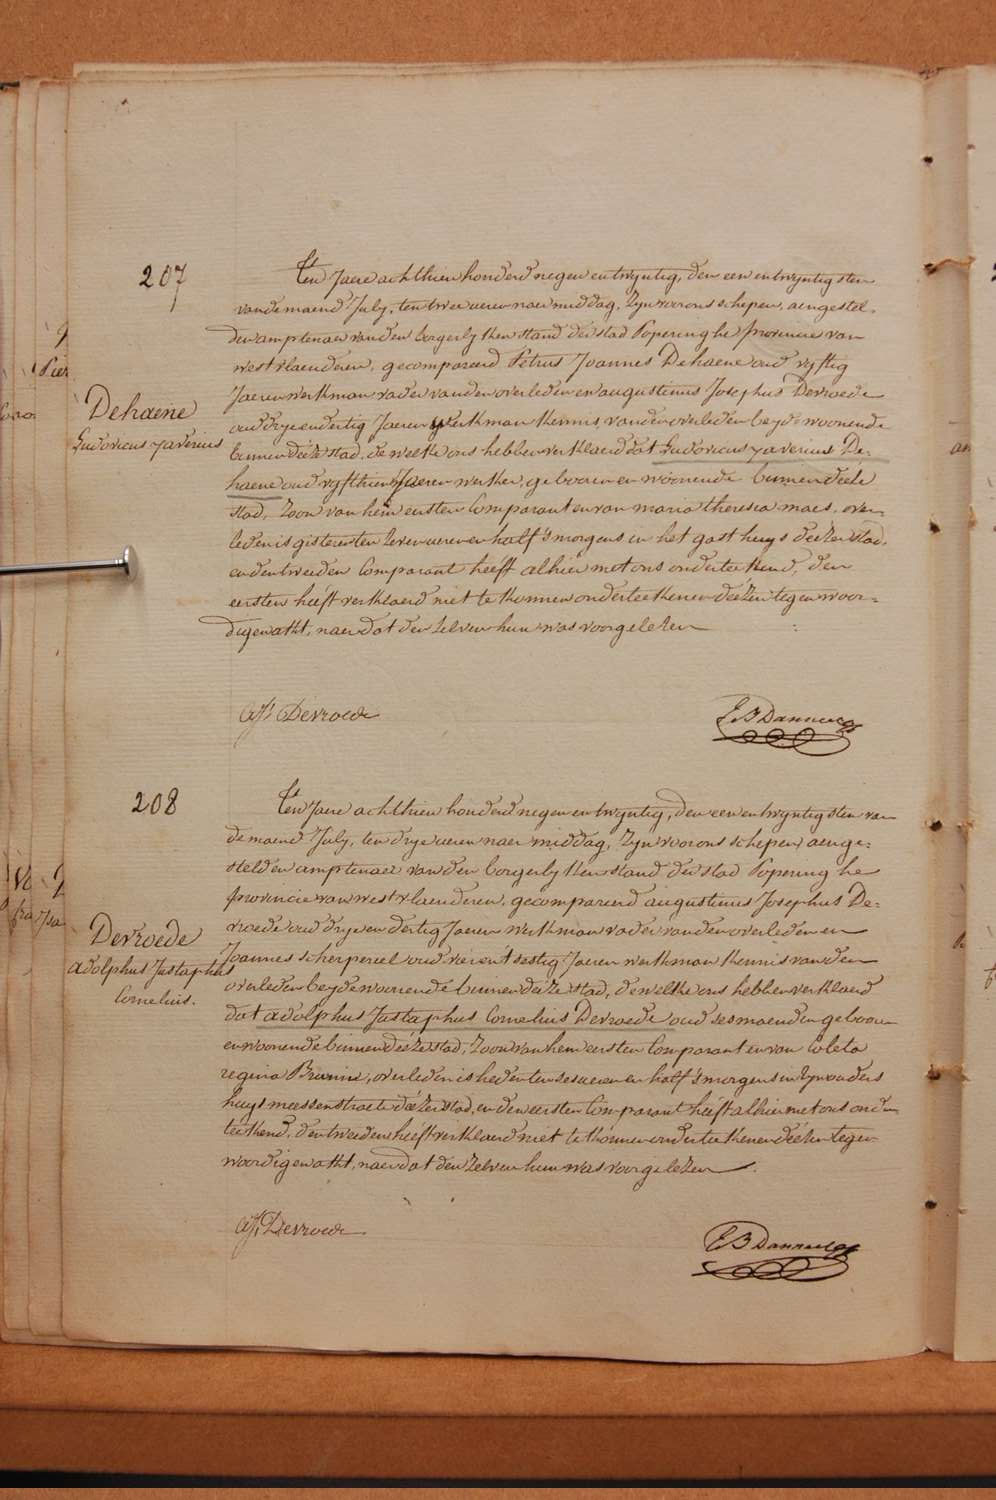 207
Ten Jaere achthien honderd negen en twyntig, den een en twyntigsten
van de maend July, ten twee ueren naer middag, Zyn voor ons schepen, aengestel-
den amptenaer van den borgerlyken stand der stad Poperinghe provincie van
westvlaenderen, gecompareerd Petrus Joannes Dehaene oud vyftig
Dehaene
Jaeren werkman vader van den overleden en augustinus Josephus Devroede
Ludovicus xaverius
oud dry en dertig Jaeren werkman kennis van den overleden beyde woonende
binnen deéze stad, de welke ons hebben verklaerd dat Ludovicus xaverius De-
haene oud vyfthien Jaeren werker, gebooren en woonende binnen deéze
stad, Zoon van hem eersten Comparant en van maria theresia maes, over-
leden is gisteren ten zeven ueren en half 's morgens in het gasthuys deézer stad,
en den tweeden Comparant heeft alhier met ons onderteekend, den
eersten heeft verklaerd niet te konnen onderteekenen deézen tegenwoor-
digen akt, naer dat den zelven hun was voorgelezen
Devroede
208
Ten Jaere achthien honderd negen en twyntig, den een en twyntigsten van
de maend July, ten dry ueren naer middag, Zyn voor ons schepen aenge-
stelden amptenaer van den borgerlyken stand der stad Poperinghe
provincie van westvlaenderen, gecompareerd augustinus Josephus De-
Devroede
vroede oud dry en dertig Jaeren werkman vader van den overleden en
adolphus Justaphus
Joannes scherpereel oud vier en t sestig Jaeren werkman kennis van den
Cornelius.
overleden beyde woonende binnen deéze stad, de welke ons hebben verklaerd
dat adolphus Justaphus Cornelius Devroede oud ses maenden gebooren
en woonende binnen deéze stad, Zoon van hem eersten Comparant en van Coleta
regina, overleden is heden ten ses ueren en half 's morgens in Zyn vaders
huys meessenstraete deézer stad, en den eersten Comparant heeft alhier met ons onder-
teekend, den tweeden heeft verklaerd niet te konnen onderteekenen deézen tegen-
woordigen akt, naer dat den zelven hun was voorgelezen.
Devroede